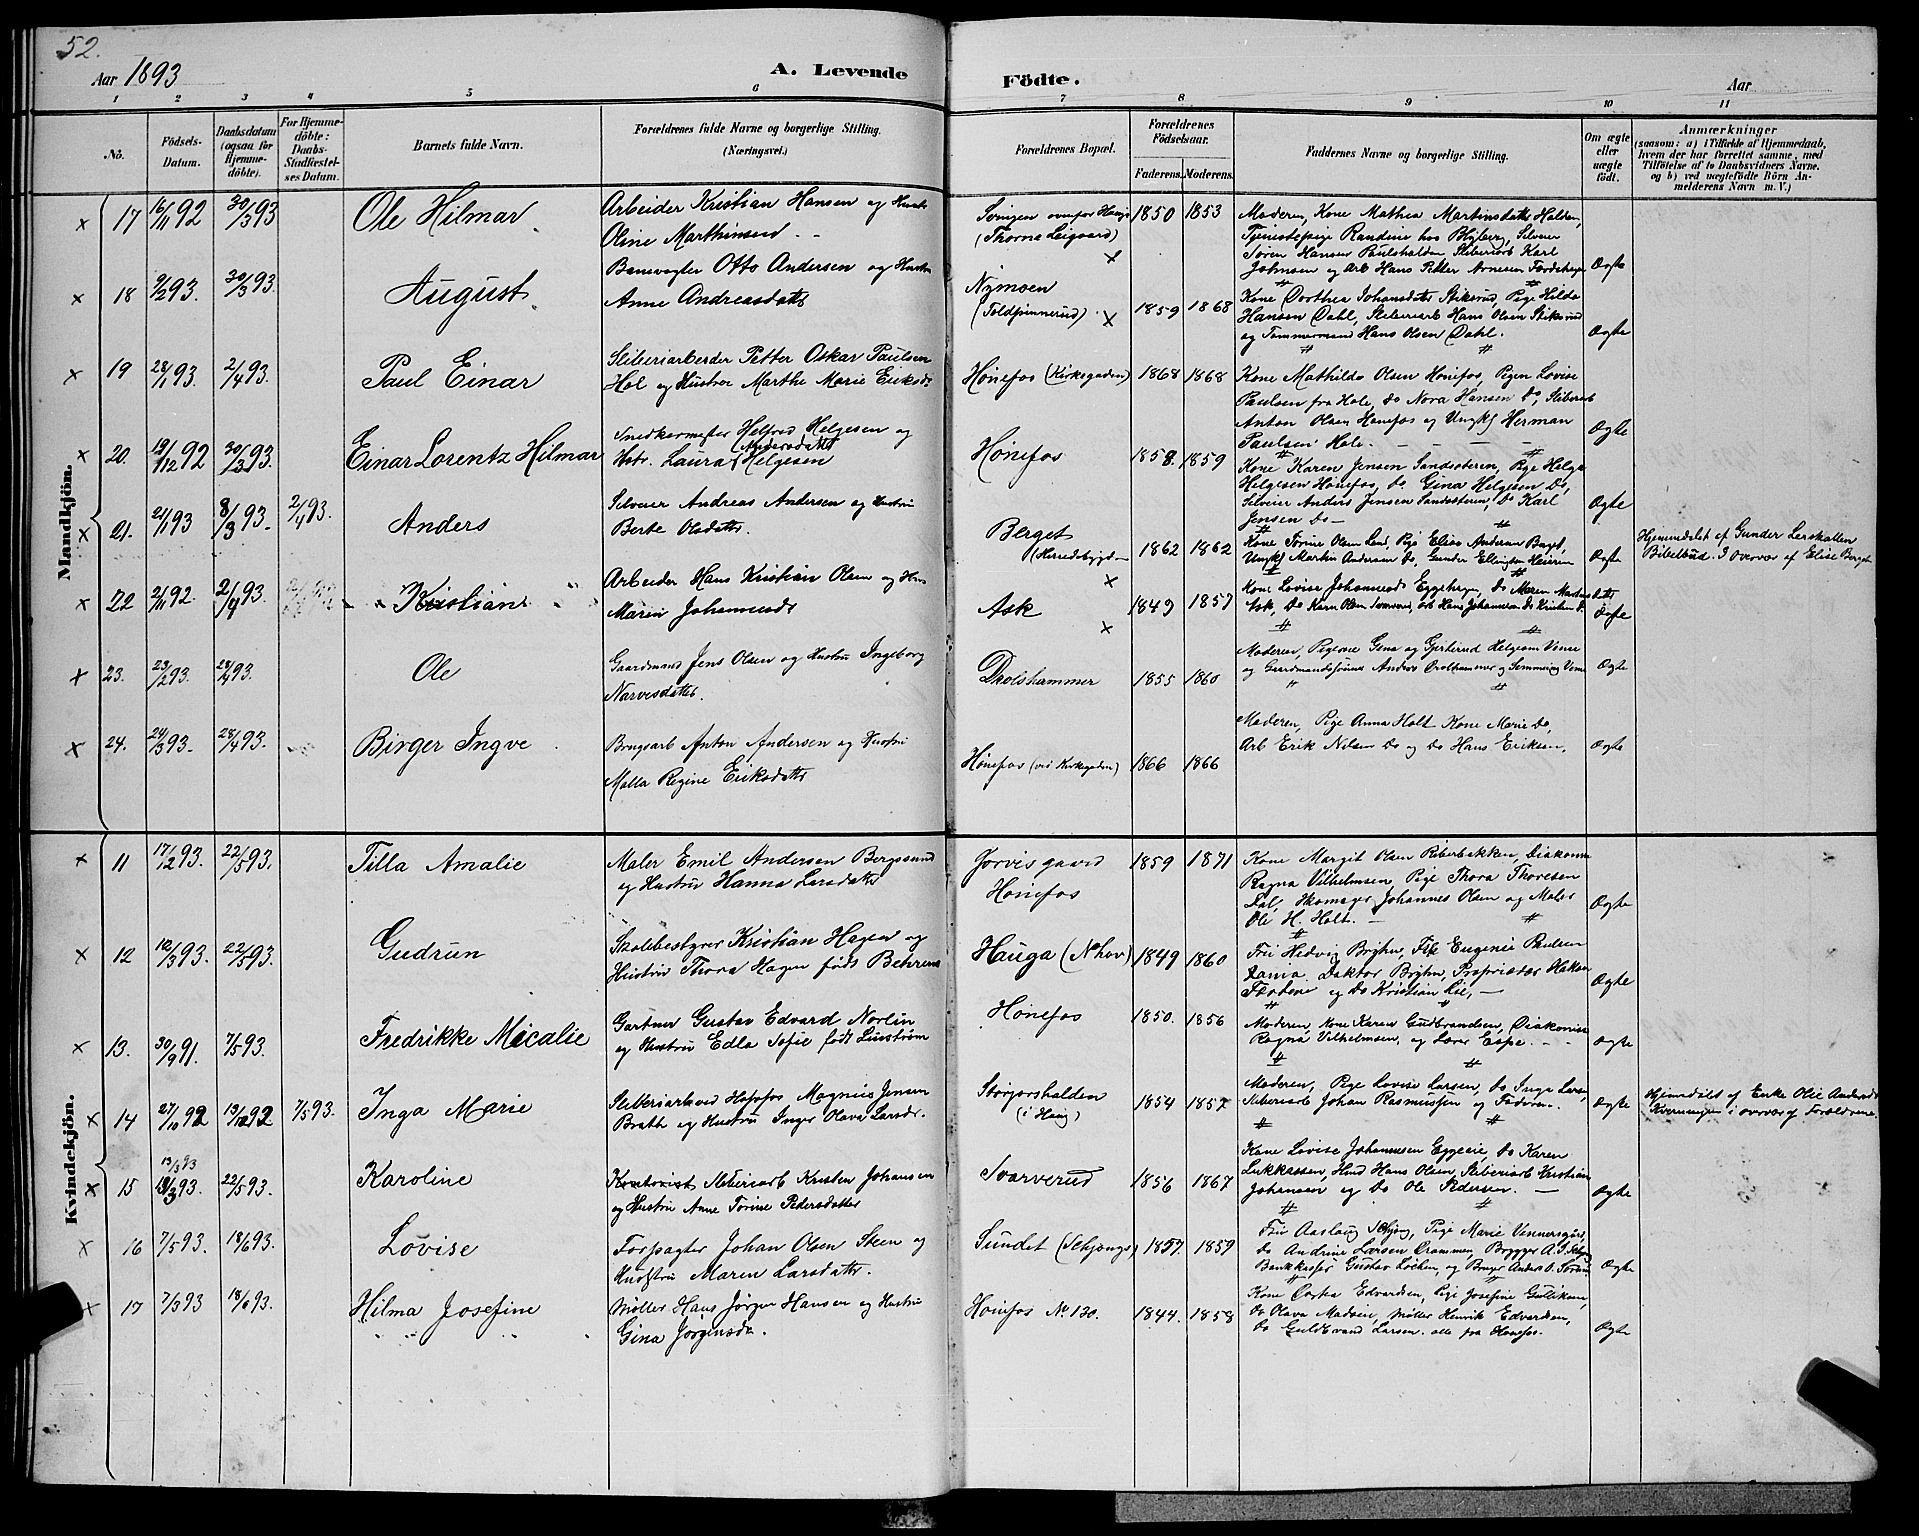 52.
Aar 1893
A. Levende
Födte.
Aar
1 2 3 4 5 6 7 8 9 10 11
No.
Födsels-
Datum.
Daabsdatum
(ogsaa for
Hjemme-
döbte).
For Hjemme-
döbte:
Daabs-
Stadfæstel-
ses Datum.
Barnets fulde Navn.
Forældrenes fulde Navne og borgerlige Stilling.
(Næringsvei.)
Forældrenes Bopæl.
Forældrenes
Födselsaar.
Faderens. Moderens.
Faddernes Navne og borgerlige Stilling.
Om ægte
eller
uægte
født.
Anmærkninger
(saasom: a) i Tilfælde af Hjemmedaab,
hvem der har forrettet samme, med
Tilföielse af to Daabsvidners Navne.
og b) ved uægtefödte Börn An-
melderens Navn m. V.)
Mandkjön.
× 17 16/11 92 30/3 93 Ole Hilmar
Arbeider Kristian Hansen og
Oline Marthinsend
Svingen ovenfor
1850 1853
Moderen, Kone Mathea Martinsdatter Halden,
Tjenestepige Randine hos
Sören Hansen Paulshalden Sliberiarb Karl
Johnsen og Arb Hans Petter Arnesen
Ægte
× 18 9/2 93. 30/3 93. August
Banevogter Otto Andersen og Hustru
Anne Andreasdatter
Nymoen
1859 1868
Kone Dorthea Johansdatter Stiksrud, Pige Hilda
Hansen Dahl, Sliberiarb Hans Olsen Stiksrud
og Tømmermand Hans Olsen Dahl.
Ægte
× 19 28/1 93. 2/4 93. Paul Einar
Sliberiarbeider Petter Oskar Paulsen
Hol og Hustru Marthe Marie Eriksdt
Hönefos (Kirkegaden)
1868 1868
Kone Mathilde Olsen Hönefos, Pigen Lovise
Paulsen fra Hole, Do Nora Hansen Do, Sliberiarb
Anton Olsen Hönefos og Ungkf Herman
Paulsen Hole.
Ægte
× 20. 19/12 92 30/3 93. Einar Lorentz Hilmar
Snedkermester Helfred Helgesen og
Hstr. Laura (Andersdatter) Helgesen
Hönefos
1858. 1859
Kone Karen Jensen Sandsteren, Pige Helga
Helgesen Hönefos, Do Gina Helgesen Do,
Selveier Anders Jensen Sandsteren, Do Karl
Jensen Do
Ægte
× 21. 21/1 93 8/3 93. 2/4 93. Anders
Selveier Andreas Andersen og Hustru
Berte Olsdatter
Berget
1862 1862
Kone Torine Olsen Lund, Pige Elise Andersen Berget,
Ungkf Martin Andersen Do, Gunder Ellingsen
Ægte
Hjemmedöbt af Gunder
i overvær af Elise Berget
× 22 2/11 92. 2/4 93. Kristian
Arbeider Hans Kristian Olsen og
Maren Johannesdt
Ask
1849 1857
Kone Lovise Johannesd Eggehagen, Do Maren
Ask, Do Karen Olsen
Ægte
× 23. 23/2 93. 23/4 93. Ole
Gaardmand Jens Olsen og Hustru Ingeborg
Narvesdatter.
Drolshammer
1855 1860
Moderen, Pigerne Gina og Gjertrud Helgesen
og Gaardmandssönnen Anders Drolhammer og
Ægte
× 24. 24/3 93. 23/4 93. Birger Ingve
Brugsarb Anton Andersen og Hustru
Malla Regine Eriksdatter
Hönefos (ved Kirkegaden)
1866 1866
Moderen, Pige Anna Holt Kone Marie Do,
Arb Erik Nilsen Do og Do Hans Eriksen,
Ægte
Kvindekjön.
× 11 17/2 93. 22/5 93. Tilla Amalie
Maler Emil Andersen Bergsund
og Hustru Hanna Larsdatter
Hönefos
1859 1871
Kone Margit Olsen Riberbakken, Diakonisse
Ragna Vilhelmsen, Pige Thora Thoresen
Dal, Skomager Johannes Olsen og Maler
Ole H. Holt.
Ægte
× 12 12/3 93. 22/5 93. Gudrun
Skolebestyrer Kristian Hagen og
Hustru Thora Hagen födt Behrens
Hauga (Nhov)
1849 1860
Fru Hedvig Bryhn, Frk Eugenie Paulsen
Doktor Bryhn, Proprietær Hakon
og Do Kristian Lie,
Ægte
× 13. 30/9 91. 7/5 93. Fredrikke Micalie
Gartner Gustav Edvard Norlin
og Hustru Edla Sofie födt Linström
Hönefos
1850. 1856
Moderen, Kone Karen Gudbrandsen, Diakonisse
Ragna Vilhelmsen, og Lærer Espe.
Ægte
× 14 27/10 92 13/12 92 7/5 93. Inga Marie
Sliberiarb ved Hofsfos Magnus Jensen
Brath og Hustru Inger Olava Larsdr.
Storjorshalden
(i Haug)
1854 1857
Moderen, Pige Lovise Larsen, Do Inga Larsen,
Sliberiarb Johan Rasmussen og Faderen.
Ægte
Hjemdöbt af Enke Olie Andersdt
i overvær af Forældrene.
13/3 93
× 15 13/3 93. 22/5 93. Karoline
Kontorist Sliberiarb Kristen Johansen
og Hustru Anne Torine Pedersdatter
Svarverud
1856 1867
Kone Lovise Johannesen Eggeeie, Do Karen
Lukkassen, Hmd Hans Olsen, Sliberiarb Kristian
Johansen og Do Ole Pedersen.
Ægte
× 16 7/5 93. 18/6 93. Lovise
Forpagter Johan Olsen Skeen og
Hustru Maren Larsdatter
Sundet (Schjongs)
1857. 1859
Fru Aaslaug Schjong, Pige Marie Vennersgaard,
Do Andrine Larsen Drammen, Brygger A.
Bankkasser Gustav Lochen, og
Ægte
× 17 7/3 93 18/6 93. Hilma Josefine
Møller Hans Jörgen Hansen og Hustru
Gina Jörgensdr.
Hönefos No 130.
1844. 1858
Kone Edvardsen, Pige Josefine Gulliksen,
Do Olava Madsen, Møller Henrik Edvardsen,
Do Guldbrand Larsen. alle fra Hönefos.
Ægte